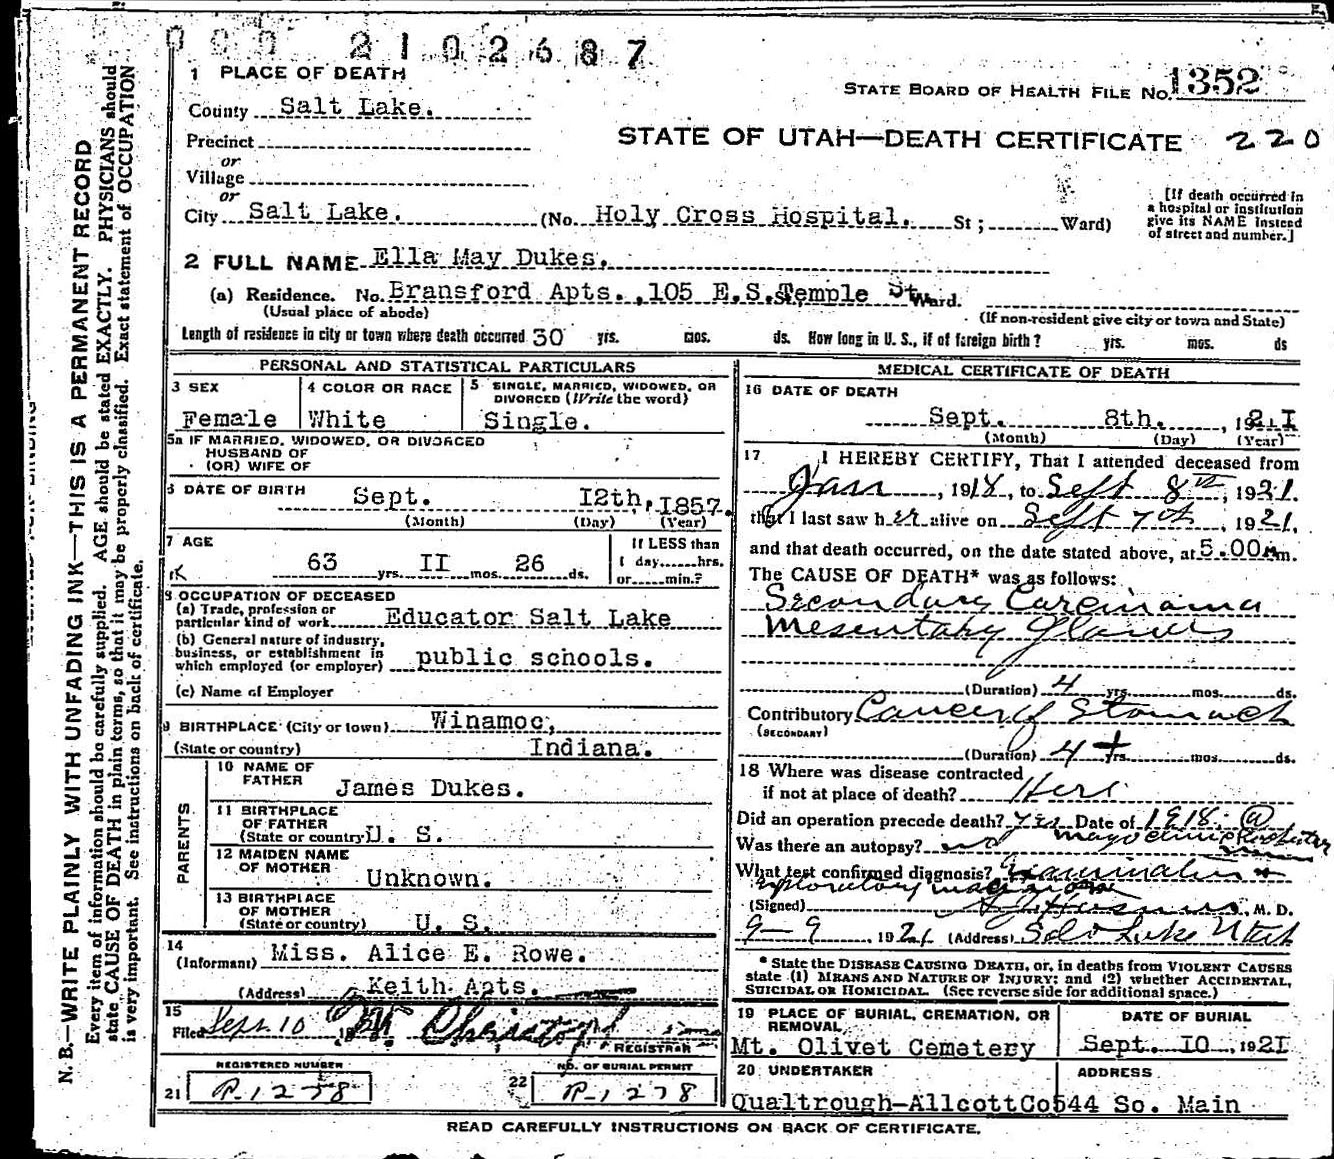 000 2102687
1 PLACE OF DEATH
STATE BOARD OF HEALTH FILE No. 1352
County Salt Lake.
STATE OF UTAH—DEATH CERTIFICATE 220
Precinct
or
Village
or
City Salt Lake. (No. Holy Cross Hospital. St; Ward)
[If death occurred in
a hospital or institution
give its NAME instead
of street and number.]
2 FULL NAME Ella May Dukes.
(a) Residence. No. Bransford Apts. ,105 E.S.Temple St. Ward.
(Usual place of abode) (If non-resident give city or town and State)
Length of residence in city or town where death occurred 30 yrs. mos. ds. How long in U. S., if of foreign birth? yrs. mos. ds
PERSONAL AND STATISTICAL PARTICULARS
3 SEX
Female
4 COLOR OR RACE
White
5 SINGLE, MARRIED, WIDOWED, OR
DIVORCED (Write the word)
Single.
5a IF MARRIED, WIDOWED, OR DIVORCED
HUSBAND OF
(OR) WIFE OF
6 DATE OF BIRTH Sept. I2th, I857.
(Month) (Day) (Year)
7 AGE
63 yrs. II mos. 26 ds.
If LESS than
1 day......hrs.
or......min.?
8 OCCUPATION OF DECEASED
(a) Trade, profession or
particular kind of work Educator Salt Lake
(b) General nature of industry,
business, or establishment in
which employed (or employer) public schools.
(c) Name of Employer
9 BIRTHPLACE (City or town) Winamoc,
(State or country) Indiana.
PARENTS
10 NAME OF
FATHER James Dukes.
11 BIRTHPLACE
OF FATHER
(State or country) U. S.
12 MAIDEN NAME
OF MOTHER Unknown.
13 BIRTHPLACE
OF MOTHER
(State or country) U. S.
14
(Informant) Miss. Alice E. Rowe.
(Address) Keith Apts.
15
Filed Sept 10
REGISTRAR
REGISTERED NUMBER
21 R-1278
NO. OF BURIAL PERMIT
22 R-1278
MEDICAL CERTIFICATE OF DEATH
16 DATE OF DEATH
Sept. 8th. , 192I
(Month) (Day) (Year)
17 I HEREBY CERTIFY, That I attended deceased from
Jan , 1918, to Sept 8th, 1921.
that I last saw her alive on Sept 7th , 1921,
and that death occurred, on the date stated above, at 5.00 m.
The CAUSE OF DEATH* was as follows:
Secondary Carcinoma
Mesentary Glands
(Duration) 4 yrs. mos. ds.
Contributory Cancer of Stomach
(SECONDARY)
(Duration) 4+ yrs. mos. ds.
18 Where was disease contracted
if not at place of death? Here
Did an operation precede death? yes Date of 1918 @
Mayo Clinic Rochester
Was there an autopsy? no
What test confirmed diagnosis? Examination +
exploratory
(Signed) M. D.
9-9 1921 (Address) Salt Lake Utah
* State the DISEASE CAUSING DEATH, or, in deaths from VIOLENT CAUSES
state (1) MEANS AND NATURE OF INJURY; and (2) whether ACCIDENTAL,
SUICIDAL OR HOMICIDAL. (See reverse side for additional space.)
19 PLACE OF BURIAL, CREMATION, OR
REMOVAL
Mt. Olivet Cemetery
DATE OF BURIAL
Sept. IO , 192I
20 UNDERTAKER
Qualtrough-AllcottCo
ADDRESS
544 So. Main
READ CAREFULLY INSTRUCTIONS ON BACK OF CERTIFICATE.
N. B.—WRITE PLAINLY WITH UNFADING INK—THIS IS A PERMANENT RECORD
Every item of information should be carefully supplied. AGE should be stated EXACTLY. PHYSICIANS should
state CAUSE OF DEATH in plain terms, so that it may be properly classified. Exact statement of OCCUPATION
is very important. See instructions on back of certificate.